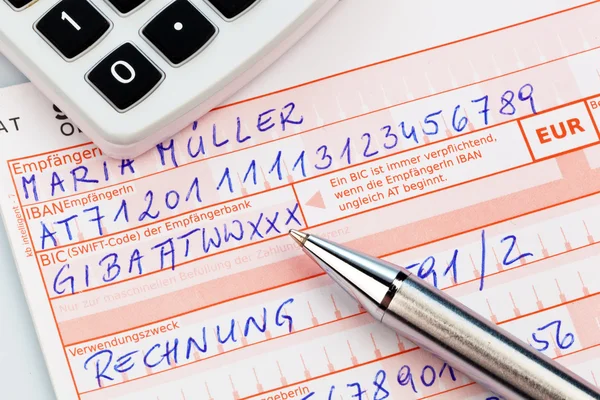 1
0
AT
EmpfängerIn
MARIA MÜLLER
IBAN EmpfängerIn
AT71201111131 23456789
BIC (SWIFT-Code) der Empfängerbank
GIBAATWWXXX
Ein BIC ist immer verpflichtend,
wenn die EmpfängerIn IBAN
ungleich AT beginnt.
EUR
Nur zur maschinellen Befüllung der Zahlungsreferenz
591/2
Verwendungszweck
RECHNUNG
56
78901